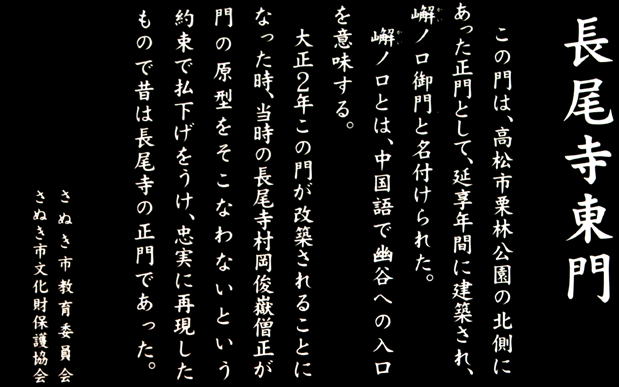 長尾寺東門
この門は、高松市栗林公園の北側に
あった正門として、延享年間に建築され、
嶰ノ口御門と名付けられた。
嶰ノ口とは、中国語で幽谷への入口
を意味する。
大正2年この門が改築されることに
なった時、当時の長尾寺村岡俊嶽僧正が
門の原型をそこなわないという
約束で払下げをうけ、忠実に再現した
もので昔は長尾寺の正門であった。
さぬき市教育委員会
さぬき市文化財保護協会